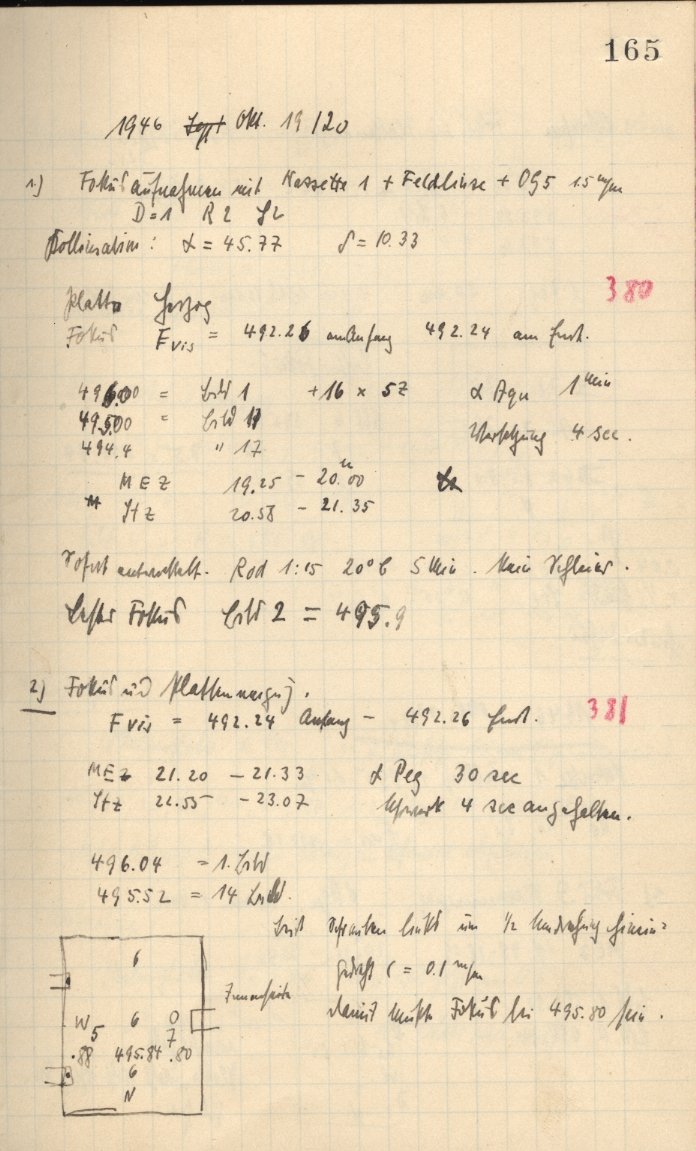 165
1946 Sept Okt. 19/20
1.) Fokusaufnahmen mit Kassette 1 + Feldlinse + OG5 1.5 m/m
D=1 R2 S2
Kollimation: α = 45.77 δ = 10.33
380
Platte Herzog
Fokus Fvis = 492.26 am Anfang 492.24 am Ende.
496.00 = Bild 1 +16 × 5Z α Aqu 1 Min
495.00 = Bild 11
494.4 " 17 Versetzung 4 sec.
MEZ 19.25 – 20.00
StZ 20.58 – 21.35
Sofort entwickelt. Rod 1:15 20°C 5 Min. Kein Schleier.
Bester Fokus Bild 2 = 495.9
2) Fokus und Plattenneigung.
Fvis = 492.24 Anfang – 492.26 Ende. 381
MEZ 21.20 – 21.33 α Peg 30 sec
StZ 22.55 – 23.07 Uhrwerk 4 sec angehalten.
496.04 = 1. Bild
495.52 = 14 Bild.
Schrauben links um 1/2 Umdrehung hinein=
gedreht ( = 0.1 m/m
damit müsste Fokus bei 495.80 sein.
6
W 6 O
5 7
.88 495.84 .80
6
N